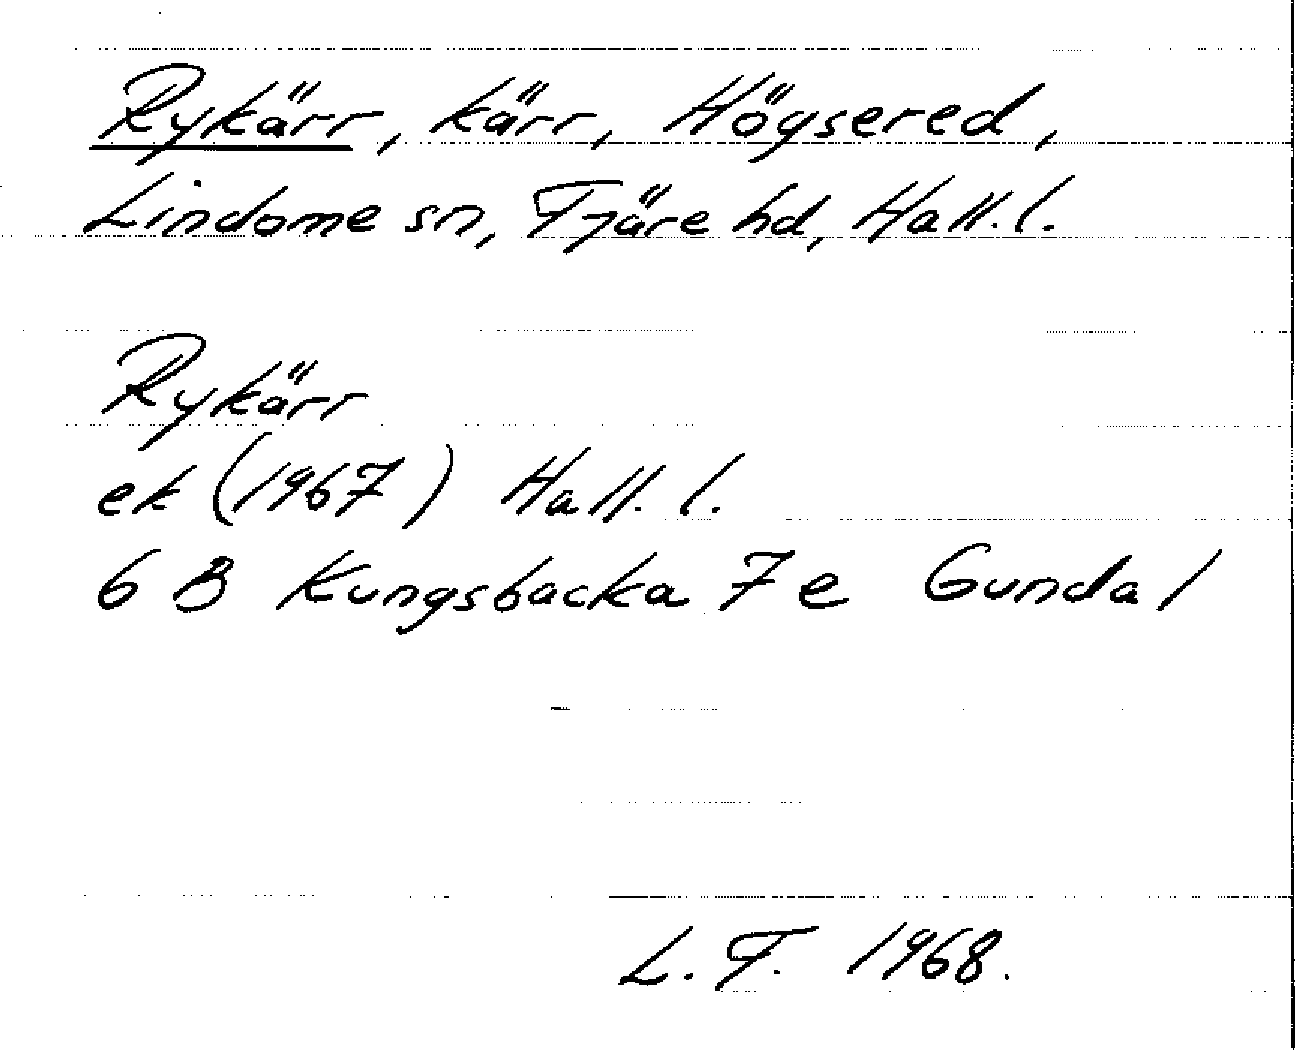 Rykärr, kärr, Högsered,
Lindome sn, Fjäre hd, Hall.l.
Rykärr
ek (1967) Hall. l.
6 B Kungsbacka 7 e Gundal
L. F. 1968.